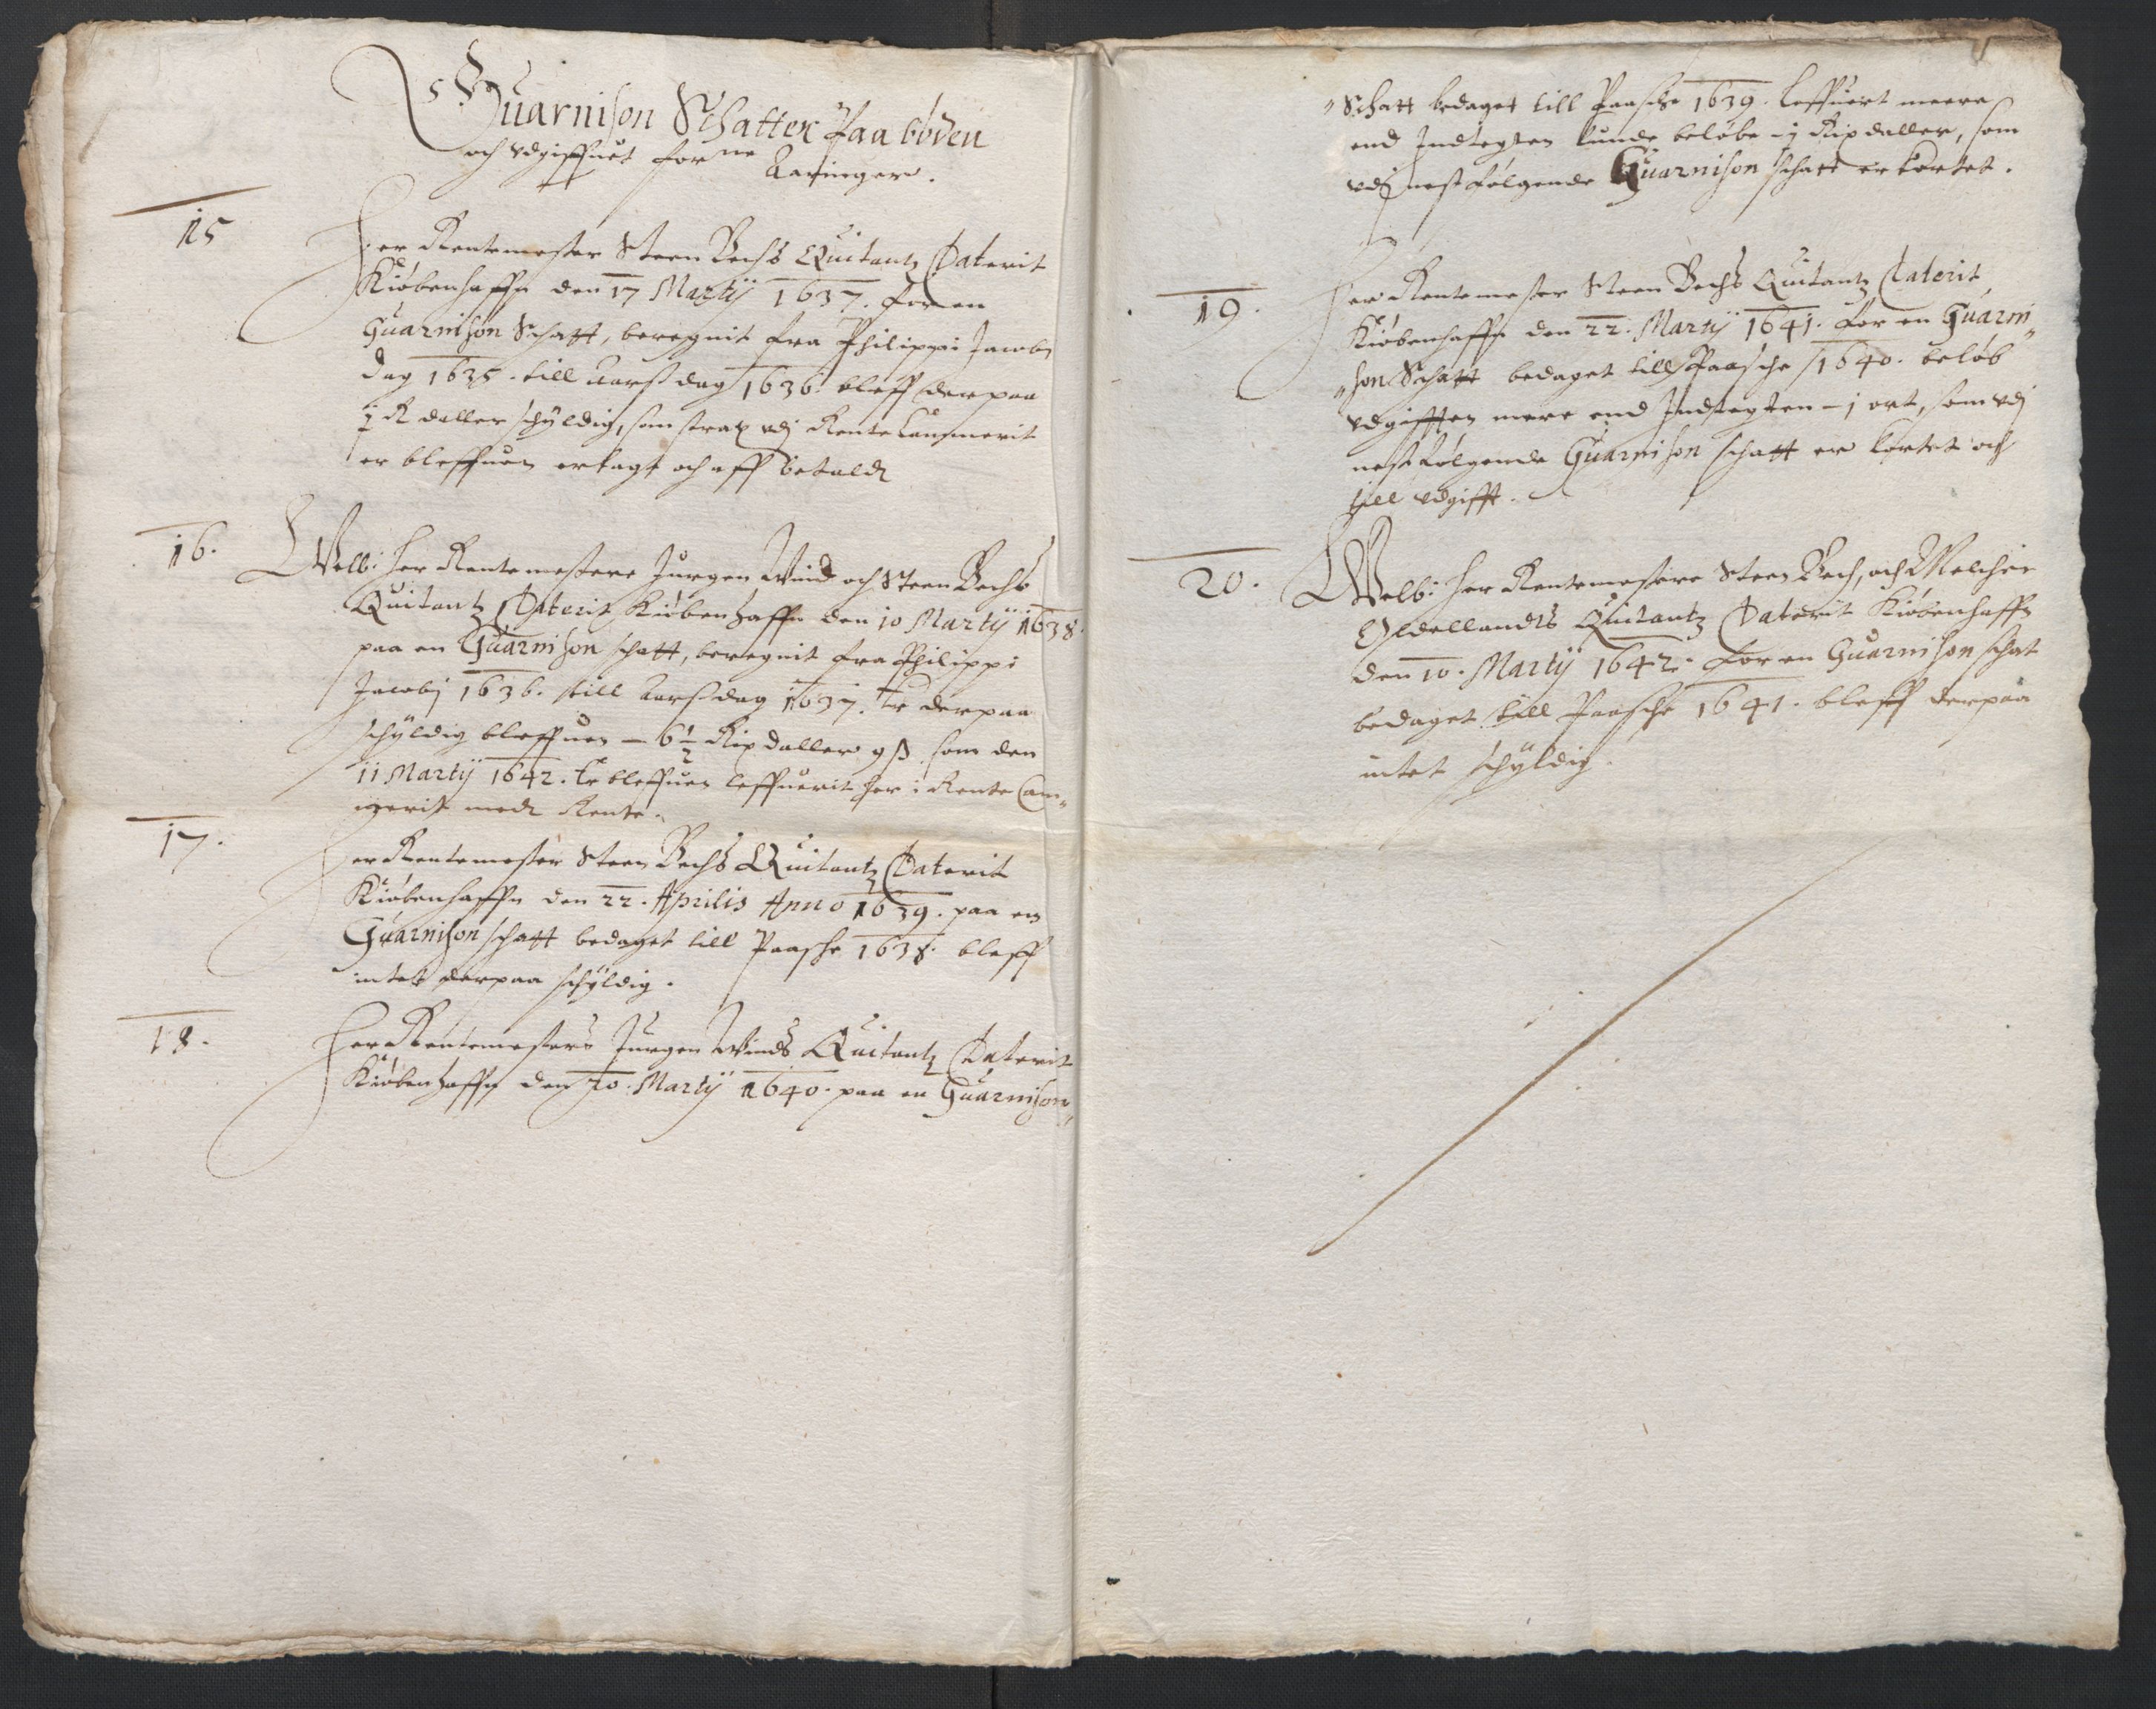 5 Guarnison Schatter Paa boden
och vdgiffuet for ne Aaringer.
15
Her Rentemester Steen Bechs Quitantz Daterit
Kiøbenhaffn den 17 Martij 1637. for en
Guarnison Schatt, beregnit fra Philippi Jacobi
dag 1635. till Aarsdag 1636. bleff derpaa
½ R daller schyldig, som strax vdj Rente Cammerit
er bleffuen erlagt och aff betaldt
16.
Welb: Her Rentemestere Jurgen Wind och Steen Bechs
Quitantz Daterit Kiøbenhaffn den 10 Martij 1638.
paa en Guarnison schatt, beregnit fra Philippi
Jacobj 1636. till Aarsdag 1637. Er derpaa
schyldig bleffuen – 6½ Rix daller 9 ß som den
11 Martij 1642. Er bleffuen leffuerit her i Rente Cam„
merit medt Rente.
17.
Her Rentemester Steen Bechs Quitantz Daterit
Kiøbenhaffn den 22. Aprilis Anno 1639. paa en
Guarnison schatt bedaget till Paasche 1638. bleff
intet derpaa schyldig.
18.
Her Rentemesters Jurgen Winds Quitantz Daterit
Kiøbenhaffn den 20. Martij 1640. paa en Guarnison„
„Schatt bedaget till Paasche 1639. leffuert meere
end Indtegten kunde beløbe – ½ Rix daller, som
vdj nest følgende Guarnison schatt er kortet.
19.
Her Rentemester Steen Bechs Quitantz Daterit
Kiøbenhaffn den 22. Martij 1641. for en Guarni„
„son Schatt bedaget till Paasche 1640. beløb
vdgifften mere end Indtegten – j ort, som vdj
nest følgende Guarnison schatt er kortet och
till vdgifft.
20.
Welb: Her Rentemestere Steen Bech, och Melchior
Oldellandts Quitantz Daterit Kiøbenhaffn
den 10. Martij 1642. for en Guarnison schat
bedaget till Paasche 1641. bleff derpaa
intet schyldig.